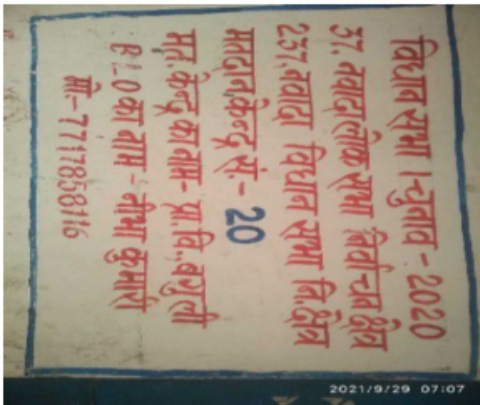 विधान सभा चुनाव - 2020
37. नवादा लोक सभा निर्वाचन क्षेत्र
237, नवादा विधान सभा नि. क्षेत्र
मतदान केन्द्र सं. - 20
मत. केन्द्र का नाम - प्रा. वि.
BLO का नाम - नीभा कुमारी
मो.- 7717858116
2021/9/29 07:07